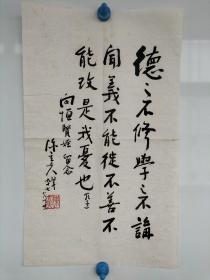 德之不修學之不講
聞義不能徙不善不
能改是我憂也孔子
向恒賢姪留念